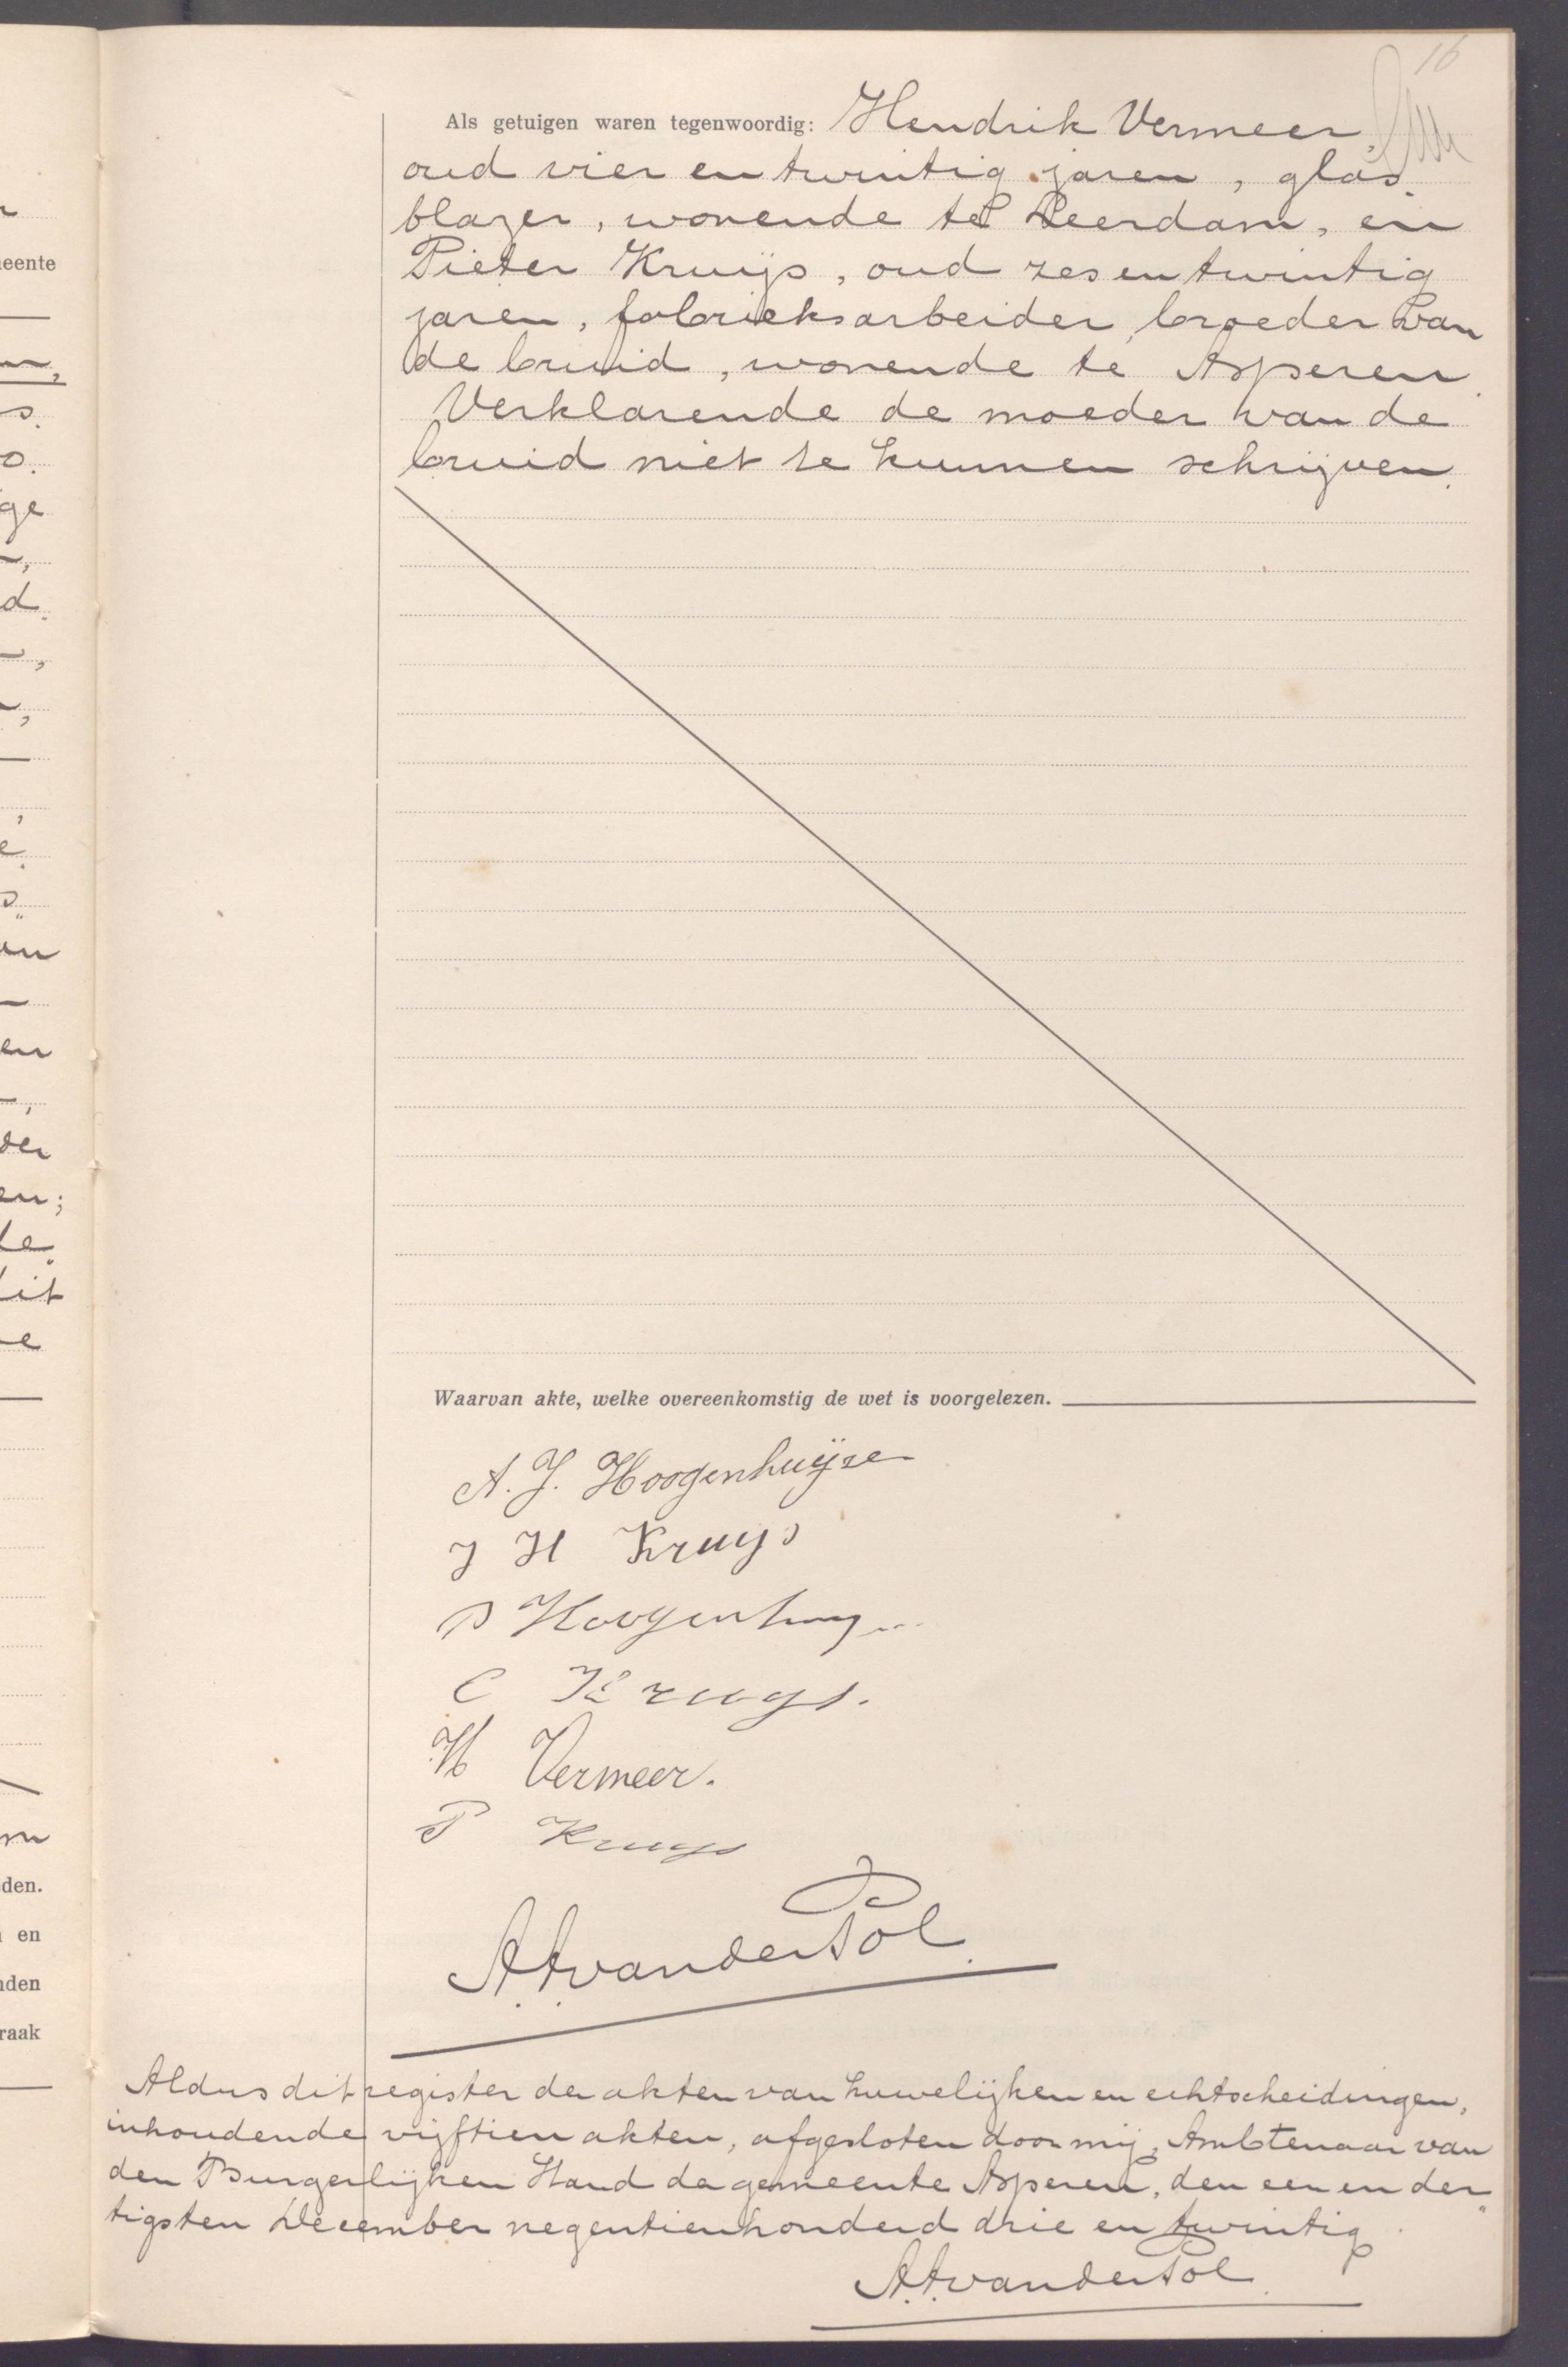 16
Als getuigen waren tegenwoordig: Hendrik Vermeer,
oud vier en twintig jaren, glas
blazer, wonende te Leerdam, en
Pieter Kruijs, oud zes en twintig
jaren, fabrieksarbeider, broeder van
de bruid, wonende te Asperen.
Verklarende de moeder van de
bruid niet te kunnen schrijven.
Waarvan akte, welke overeenkomstig de wet is voorgelezen.
A. J. Hoogenhuijze
J H Kruys
Hoogenhuy
C Kruys.
H Vermeer.
P Kruys
A. A. van der Pol
Aldus dit register der akten van huwelijken en echtscheidingen,
inhoudende vijftien akten, afgesloten door mij, Ambtenaar van
den Burgerlijken Stand der gemeente Asperen, den een en der
tigsten December negentienhonderd drie en twintig.
A. A. van der Pol
eente
ge
d
en
der
en;
de
dit
den.
en
nden
raak